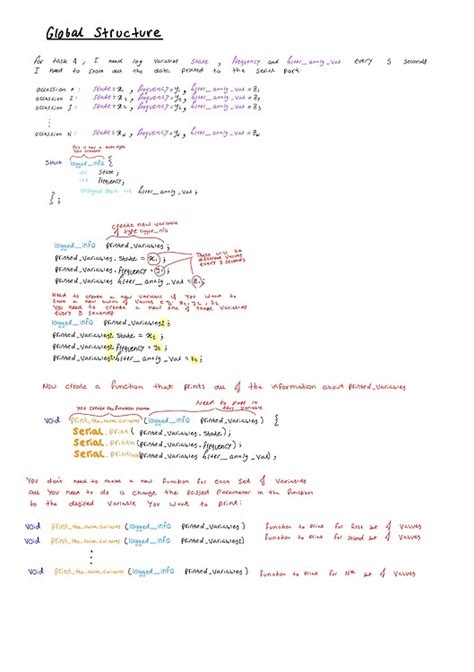 Global Structure
For task A, I need log variables state, frequency and filter_analy_val every 5 seconds
I need to store all the data printed to the serial port
occussion : State = x₁, frequency = y₁, filter_analy_val = z₁
occussion 2: State = x₂, frequency = y₂, filter_analy_val = z₂
occussion 3: State = , frequency = , filter_analy_val =
occussion N: State = xₙ, frequency = yₙ, filter_analy_val = zₙ
This is now a data type
you created
Struct logged_info {
int State;
int frequency;
int filter_analy_val;
};
create new variable
of type logged_info
logged_info printed_variables;
printed_variables.state = x₁;
printed_variables.frequency = y₁;
printed_variables filter_analy_val = z₁;
These will be
different values
every 5 seconds
Need to create a new variable if you want to
store a new of values e.g. x₂, y₂, z₂
You need to create a new of these variables
every 5 seconds
logged_info printed_variables2;
printed_variables2.state = x₂;
printed_variables2.frequency = y₂;
printed_variables2.filter_analy_val = z₂;
Now create a function that prints all of the information about printed_variables
you create the function name
Need to pass in
this variable
void print_the_term_variables (logged_info printed_variables) {
Serial.print (printed_variables.state);
Serial.print (printed_variables.frequency);
Serial.println printed_variables filter_analy_val);
You don't need to make a new function for each set of variables
all you need to do is change the passed parameter in the function
to the desired variable you want to print:
void print_the_term_variables (logged_info printed_variables) function to print for first set of values
void print_the_term_variables (logged_info printed_variables2) function to print for second set of values
void print_the_term_variables (logged_info printed_variables) function to print for Nth set of values